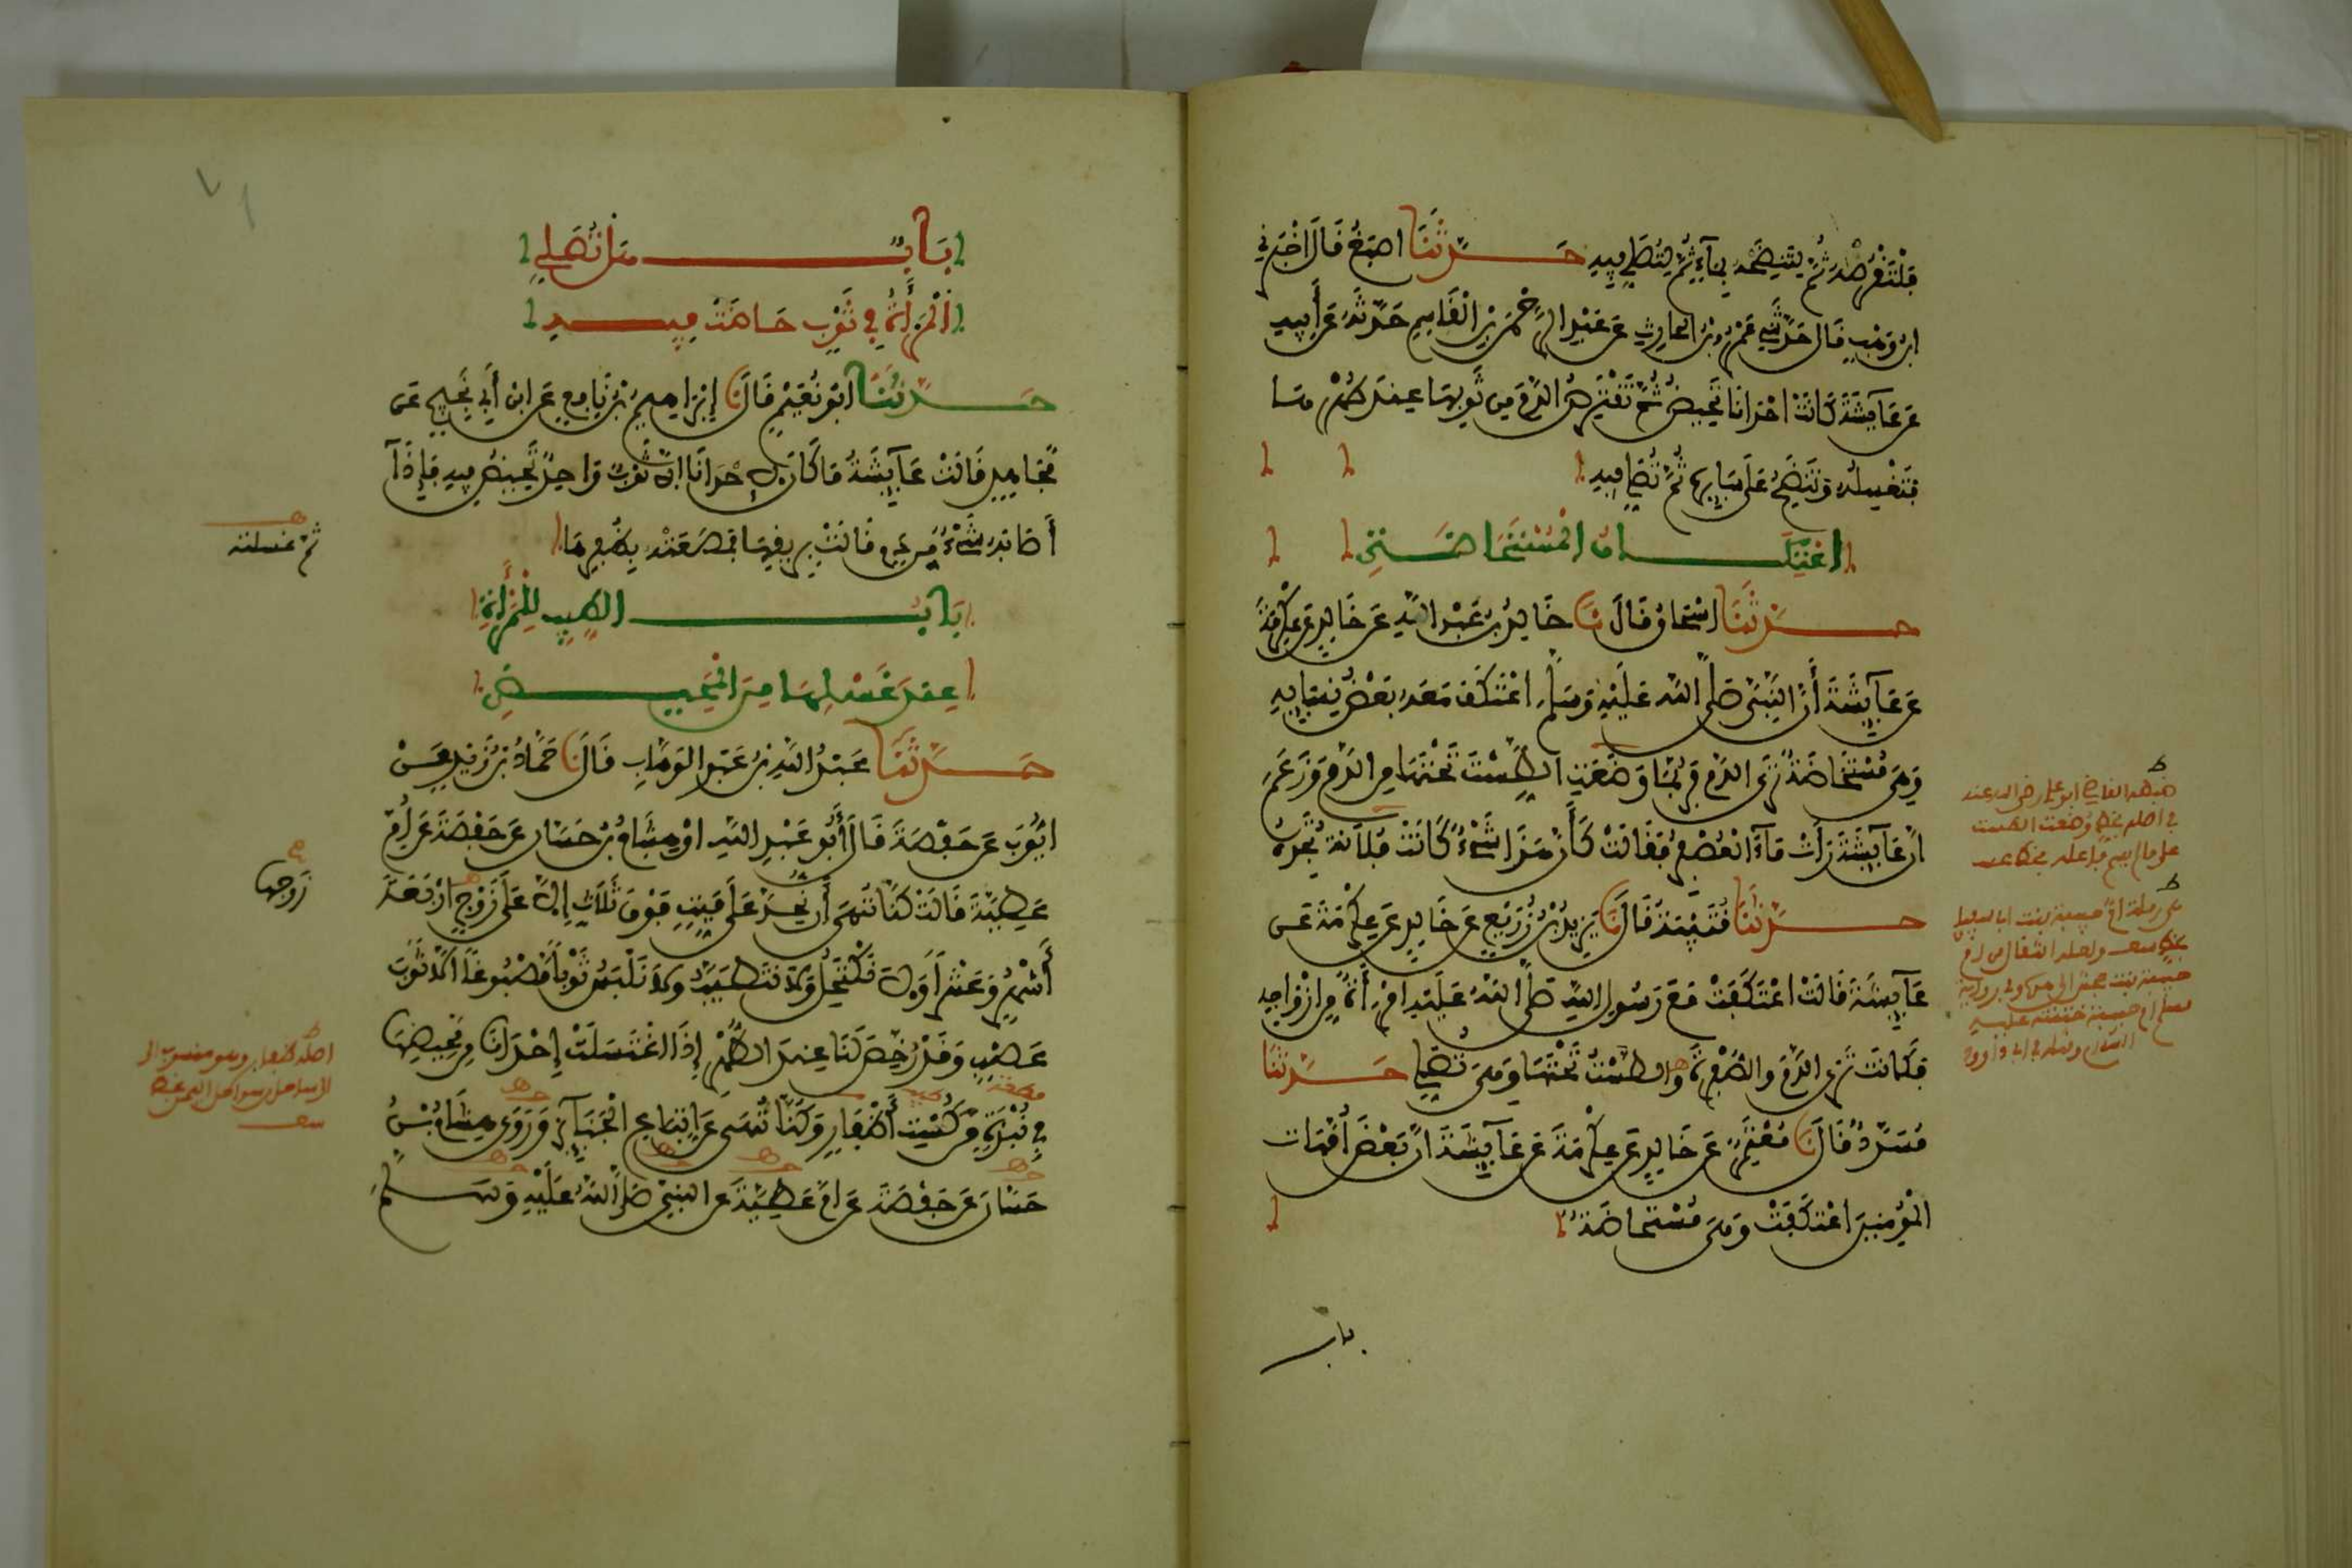 فلتقرصه ثم لتنضحه بماء ثم لتصلي فيه حدثنا اصبغ قال اخبرني
ابن وهب قال حدثني عمرو بن الحارث عن عبد الرحمن بن القاسم حدثه عن أبيه
عن عايشة قالت كانت احدانا تحيض ثم تقترص الدم من ثوبها عند طهرها
فتغسله وتنضح على سايره ثم تصلي فيه
اعتكاف المستحاضة
حدثنا اسحاق قال نا خالد بن عبد الله عن خالد عن عكرمة
عن عايشة أن النبي صلى الله عليه وسلم اعتكف معه بعض نسايه
وهي مستحاضة ترى الدم فربما وضعت الطست تحتها من الدم وزعم
ان عايشة رأت ماء العصفر فقالت كأن هذا شيء كانت فلانة تجده
حدثنا قتيبة قال نا يزيد بن زريع عن خالد عن عكرمة عن
عايشة قالت اعتكفت مع رسول الله صلى الله عليه امرأة من ازواجه
فكانت ترى الدم والصفرة والطست تحتها وهي تصلي حدثنا
مسدد قال نا معتمر عن خالد عن عكرمة عن عايشة ان بعض أمهات
المؤمنين اعتكفت وهي مستحاضة
باب
باب هل تصلي
المرأة في ثوب حاضت فيه
حدثنا أبو نعيم قال نا إبراهيم بن نافع عن ابن أبي نجيح عن
مجاهد قال قالت عايشة ما كان لإحدانا الا ثوب واحد تحيض فيه فإذا
أصابه شيء من دم قالت بريقها فمصعته بظفرها
ثم غسلته
باب الطيب للمرأة
عند غسلها من المحيض
حدثنا عبد الله بن عبد الوهاب قال نا حماد بن زيد عن
ايوب عن حفصة قال أبو عبد الله او هشام بن حسان عن حفصة عن أم
عطية قالت كنا ننهى أن نحد على ميت فوق ثلاث إلا على زوج اربعة
زوجها
أشهر وعشرا ولا نكتحل ولا نتطيب ولا نلبس ثوبا مصبوغا الا ثوب
عصب وقد رخص لنا عند الطهر إذا اغتسلت إحدانا من محيضها
في نبذة من كست أظفار وكنا ننهى عن اتباع الجنايز وروى هشام بن
حسان عن حفصة عن ام عطية عن النبي صلى الله عليه وسلم